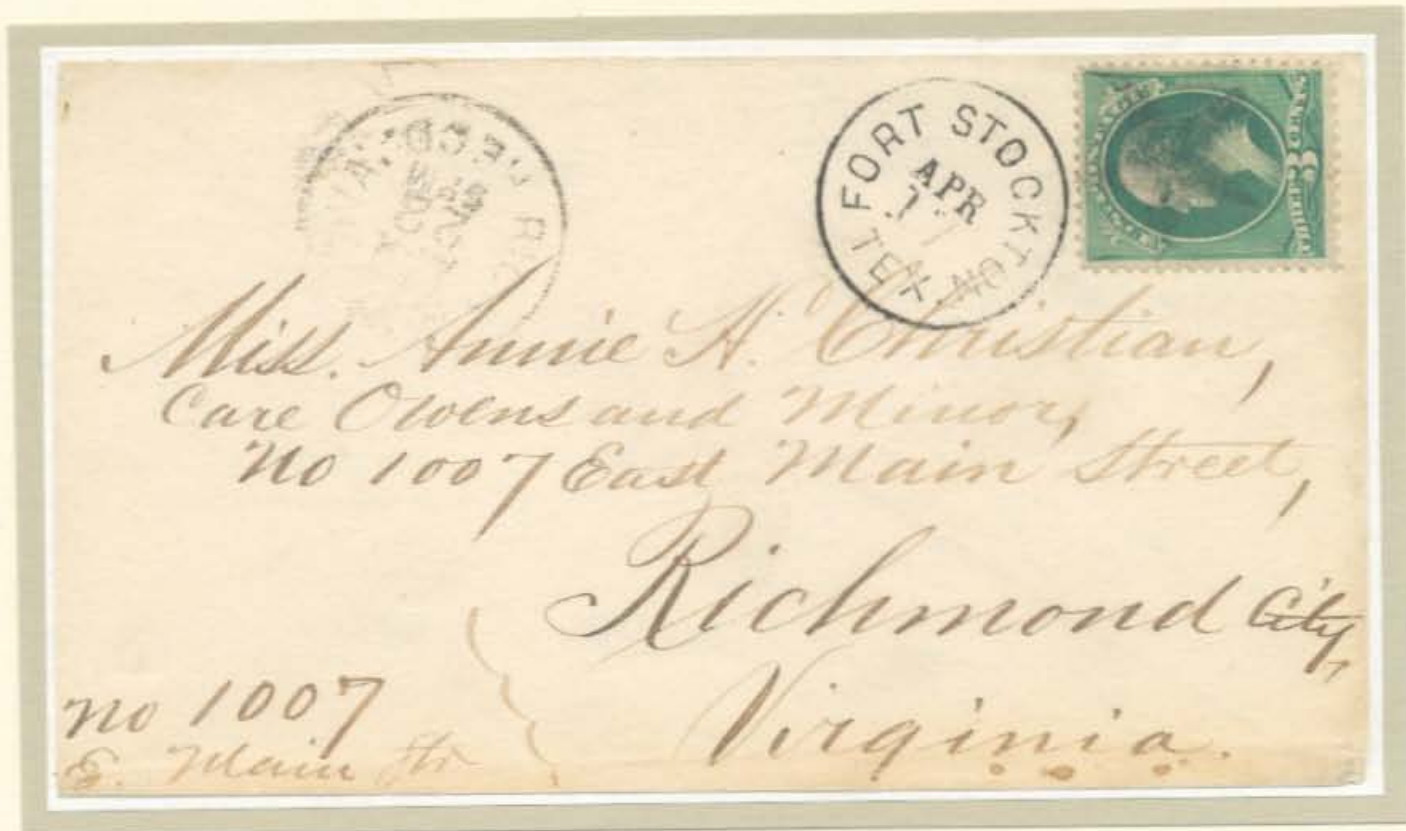 REC'D
5 PM
FORT STOCKTON
TEX.
APR
17
THREE 3 CENTS
Miss. Annie H. Christian,
Care Owens and Minor,
No 1007 East Main Street,
Richmond City,
Virginia.
no 1007
E. Main Str